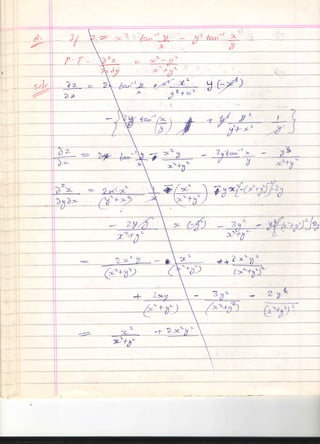 2. If z = x² tan⁻¹ y/x - y² tan⁻¹ x/y
P.T. ∂²z/∂x∂y = x²-y²/x²+y²
Sol: ∂z/∂x = 2x tan⁻¹ y/x + x²·x²/y²+x² y(-x⁻²)
- { 2y tan⁻¹(x/y) + y²·y²/y²+x² 1/y }
∂z/∂x = 2x tan⁻¹ y/x - x²y/x²+y² - 2y tan⁻¹ x/y - y³/x²+y²
∂²z/∂y∂x = 2x·x²/(y²+x²) - (x²/x²+y²) - yx²{-(x²+y²)⁻²}2y
- 2y·y²/x²+y² x(-y²) - 3y²/x²+y² - y³{-(x²+y²)⁻²}2y
= 2x²y/(x²+y²) - x²/(x²+y²) + 2x²y²/(x²+y²)²
+ 2xy/(x²+y²) - 3y²/(x²+y²) - 2y⁴/(x²+y²)²
= x²/x²+y² + 2x²y²